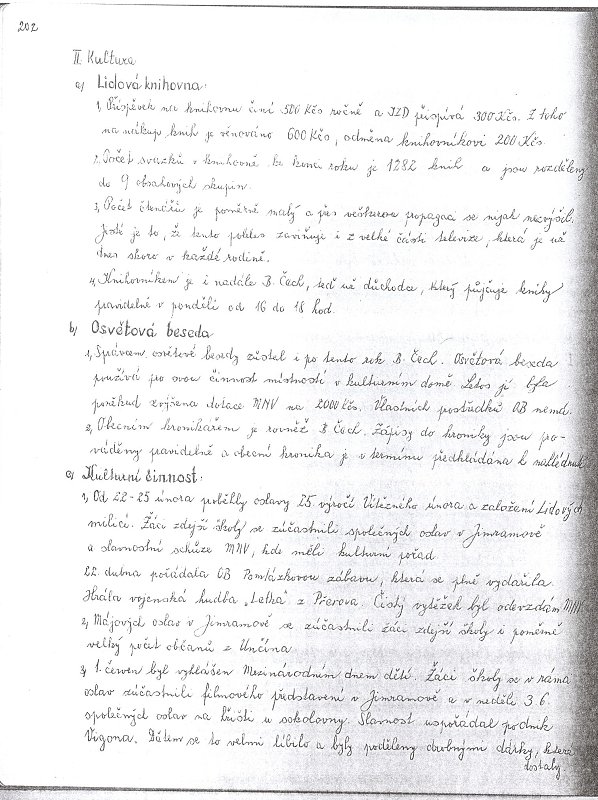 202
II. Kultura
a) Lidová knihovna.
1, Příspěvek na knihovnu činí 500 Kčs ročně a JZD přispívá 300 Kčs. Z toho
na nákup knih je věnováno 600 Kčs, odměna knihovníkovi 200 Kčs.
2, Počet svazků v knihovně ke konci roku je 1282 knih a jsou rozděleny
do 9 obsahových skupin.
3, Počet čtenářů je poměrně malý a přes veškerou propagaci se nijak nezvýšil.
Jisté je to, že tento pokles zaviňuje i z velké části televize, která je už
dnes skoro v každé rodině.
4, Knihovníkem je i nadále B. Čech, teď už důchodce, který půjčuje knihy
pravidelně v pondělí od 16 do 18 hod.
b) Osvětová beseda
1, Správcem osvětové besedy zůstal i po tento rok B. Čech. Osvětová beseda
používá pro svou činnost místností v kulturním domě. Letos jí byla
poněkud zvýšena dotace MNV na 2000 Kčs. Vlastních prostředků OB nemá.
2, Obecním kronikářem je rovněž B. Čech. Zápisy do kroniky jsou pro-
váděny pravidelně a obecní kronika je v termínu předkládána k nahlédnutí.
c) Kulturní činnost.
1, Od 22-25 února proběhly oslavy 25. výročí Vítězného února a založení Lidových
milicí. Žáci zdejší školy se zúčastnili společných oslav v Jimramově
a slavnostní schůze MNV, kde měli kulturní pořad.
22. dubna pořádala OB Pomlázkovou zábavu, která se plně vydařila.
Hrála vojenská hudba „Letka" z Přerova. Čistý výtěžek byl odevzdán MNV.
2, Májových oslav v Jimramově se zúčastnili žáci zdejší školy i poměrně
velký počet občanů z Unčína.
3, 1. červen byl vyhlášen Mezinárodním dnem dětí. Žáci školy se v rámci
oslav zúčastnili filmového představení v Jimramově a v neděli 3. 6.
společných oslav na hřišti u sokolovny. Slavnost uspořádal podnik
Vigona. Dětem se to velmi líbilo a byly poděleny drobnými dárky, které
dostaly.